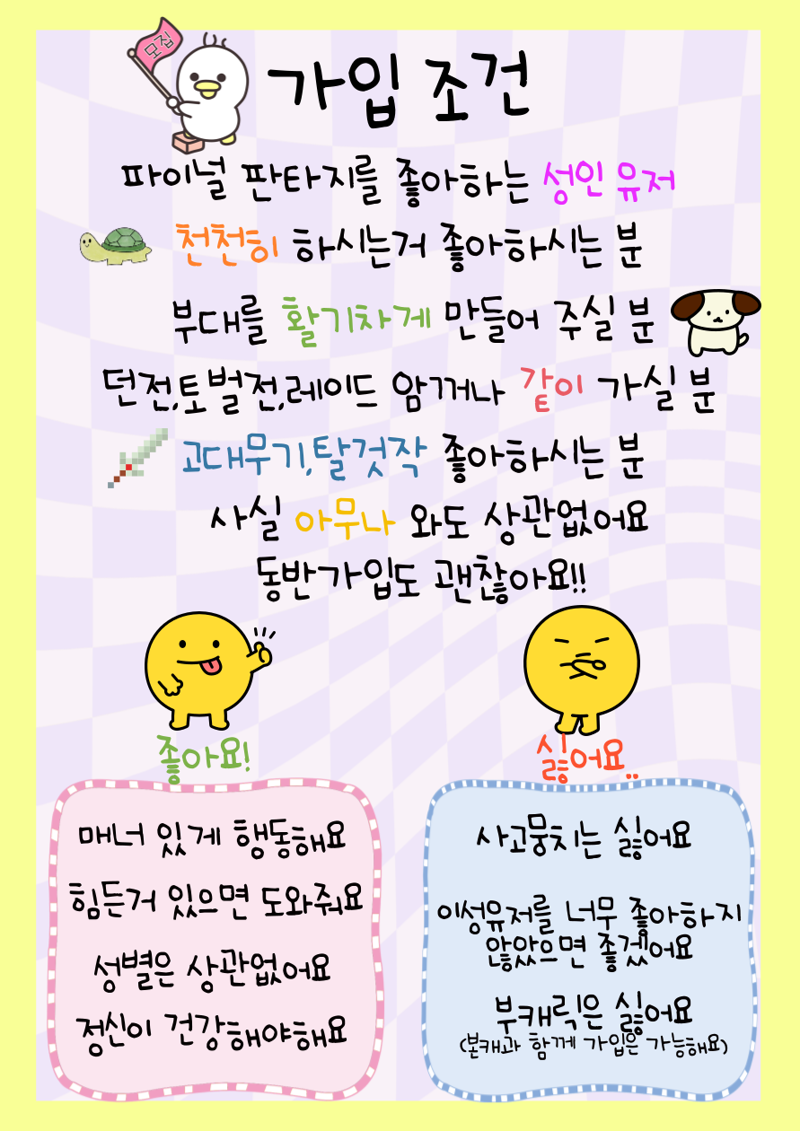 모집
가입 조건
파이널 판타지를 좋아하는 성인 유저
천천히 하시는거 좋아하시는 분
부대를 활기차게 만들어 주실 분
던전,토벌전,레이드 암꺼나 같이 가실 분
고대무기,탈것작 좋아하시는 분
사실 아무나 와도 상관없어요
동반가입도 괜찮아요!!
좋아요!
매너 있게 행동해요
힘든거 있으면 도와줘요
성별은 상관없어요
정신이 건강해야해요
싫어요..
사고뭉치는 싫어요
이성유저를 너무 좋아하지
않았으면 좋겠어요
부캐릭은 싫어요
(본캐과 함께 가입은 가능해요)